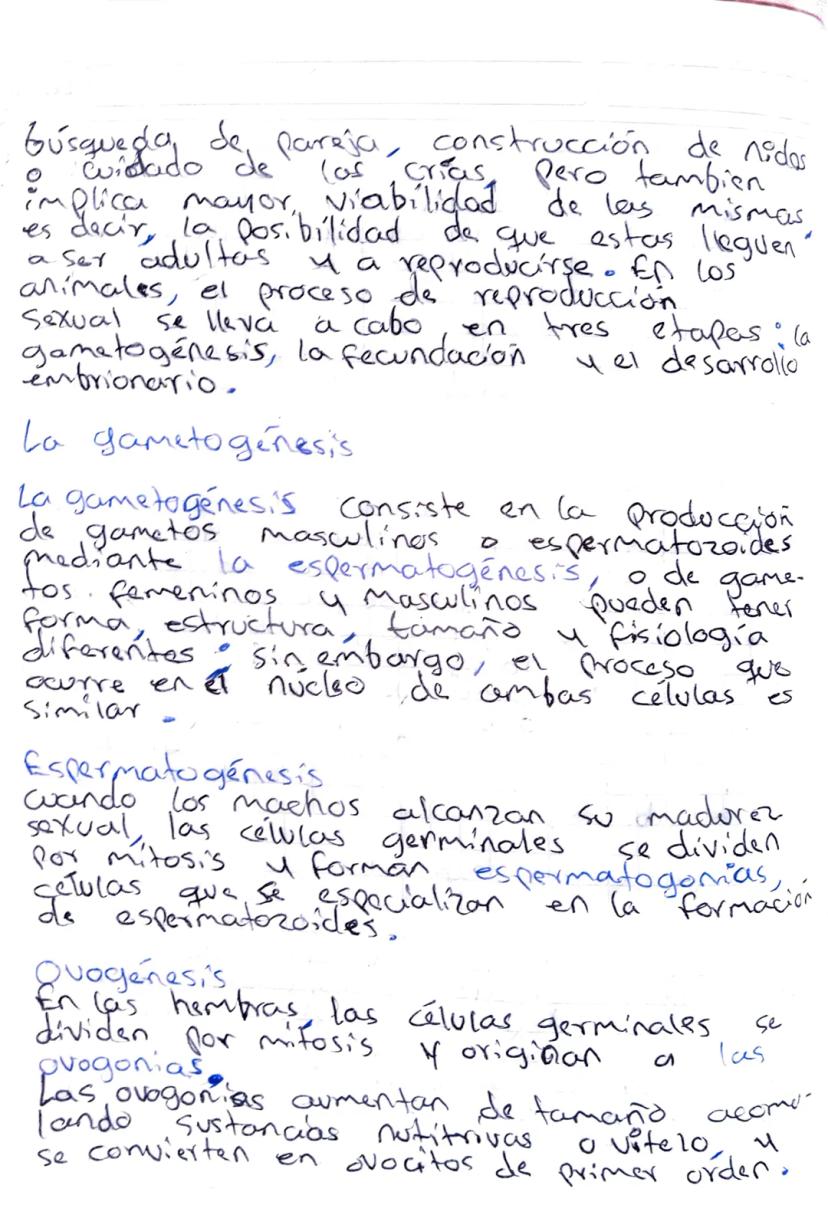 búsqueda, de pareja, construcción de nidos
o cuidado de las crías, pero tambien
implica mayor, viabilidad de las mismas
es decir, la posibilidad de que estas lleguen
a ser adultas y a reproducirse. En los
animales, el proceso de reproducción
sexual se lleva a cabo, en tres etapas: la
gametogénesis, la fecundación y el desarrollo
embrionario.
La gametogénesis
La gametogénesis consiste en la producción
de gametos masculinos o espermatozoides
mediante la espermatogénesis, o de game-
tos femeninos y masculinos pueden tener
forma, estructura, tamaño y fisiología
diferentes; sin embargo, el proceso que
ocurre en el núcleo de ambas células es
similar.
Espermatogénesis
cuando los machos alcanzan su madurez
sexual, las células germinales se dividen
por mitosis y forman espermatogonias,
células que se especializan en la formación
de espermatozoides.
Ovogénesis
En las hembras, las células germinales se
dividen por mitosis y originan a las
ovogonias.
Las ovogonias aumentan de tamaño acomu-
lando sustancias nutitrivas o vitelo, y
se convierten en ovocitos de primer orden.